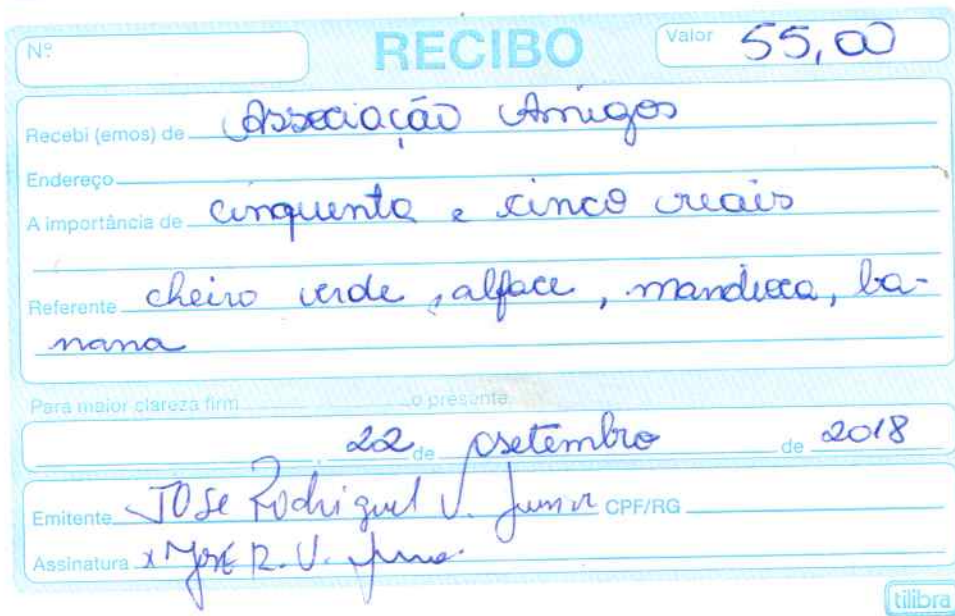 Nº RECIBO Valor 55,00
Recebi (emos) de Associação Amigos
Endereço
A importância de cinquenta e cinco reais
Referente cheiro verde, alface, mandioca, ba-
nana
Para maior clareza firm o presente
, 22 de setembro de 2018
Emitente JOSE Rodriguel V. Junior CPF/RG
Assinatura x José R. V. Junior
tilibra